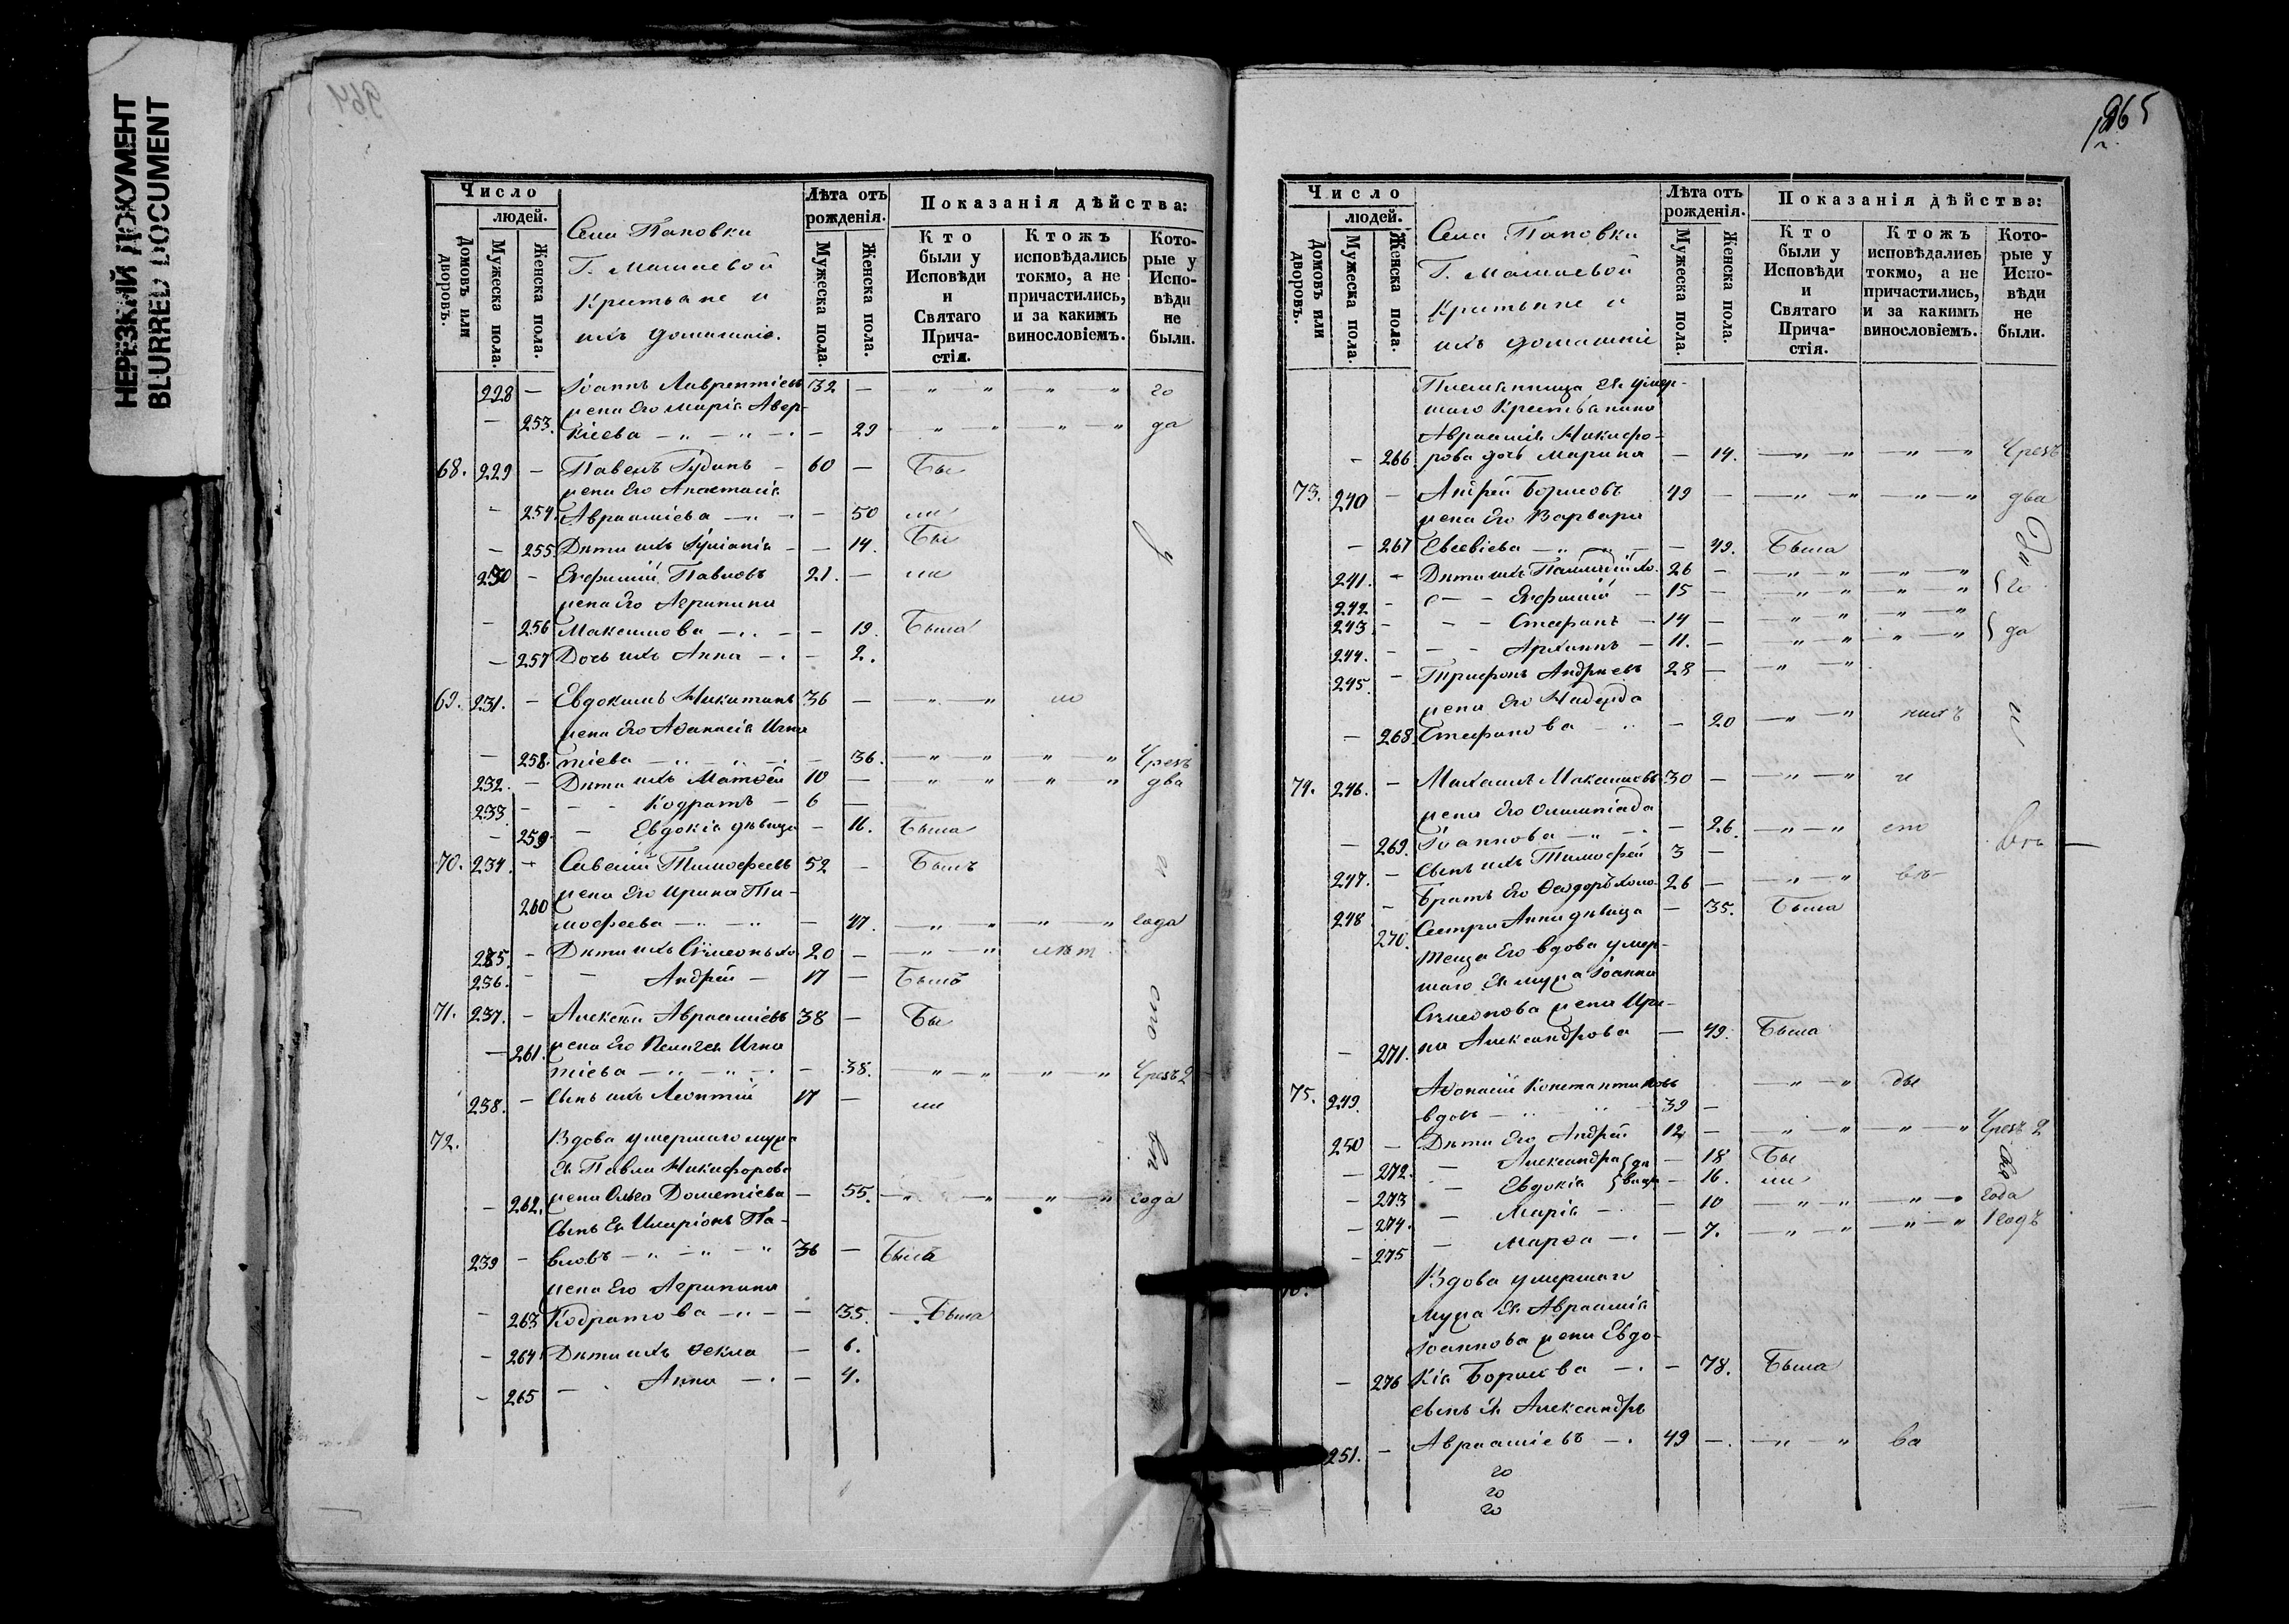 НЕРЕЗКИЙ ДОКУМЕНТ
BLURRED DOCUMENT
964
Число
людей.
Домовъ или дворовъ.
Мужеска пола.
Женска пола.
Села Паповки
Г.
Крестьяне и
ихъ домашніе.
Лѣта отъ рожденія.
Мужеска пола.
Женска пола.
Показанія дѣйства:
Кто были у Исповѣди и Святаго Причастія.
Ктожъ исповѣдались токмо, а не причастились, и за какимъ винословіемъ.
Которые у Исповѣди не были.
228 — Іоаннъ Лаврентіевъ 32 — го
жена его Марія Авер-
— 253. кіева — 29 да
68. 229 — Павелъ — 60 — Бы
жена его Анастасія
— 254. Авраміева — 50 ли
— 255. Дѣти ихъ — 14. Бы
230 — Евфимій Павловъ 21. — ли
жена его Агрипина
— 256 Максимова — 19. Была
— 257 Дочь ихъ Анна — 2.
69. 231. — Евдокимъ Никитинъ 36 —
жена его Афанасія Игна
— 258. тіева — 36. Чрезъ
232. — Дѣти ихъ Матѳей 10 — два
233. — Кодратъ — 6 —
— 259. — Евдокія дѣвица — 16. Была
70. 234. — Савелій Тимофеевъ 52 — Былъ
260 жена его Ирина Ти-
мофеева — 47. года
235. — Дѣти ихъ Сѵмеонъ хо. 20 — лѣт
236. — Андрей — 17 — Былъ
71. 237. — Алексѣй Авраміевъ 38 — Бы
— 261. жена его Пелагея Игна
тіева — 38. Чрезъ 2
238. — Сынъ ихъ Леонтій 17 — ли
72. Вдова умершаго мужа
ея Павла Никифорова
— 262. жена Ольга Дометіева — 55. года
Сынъ ея Иларіонъ Па-
239 — вловъ — 36 — Былъ
жена его Агрипина
— 263 Кодратова — 35. Была
— 264 Дѣти ихъ Ѳекла — 6.
— 265 — Анна — 4.
965
Число
людей.
Домовъ или дворовъ.
Мужеска пола.
Женска пола.
Села Паповки
Г.
Крестьяне и
ихъ домашніе
Лѣта отъ рожденія.
Мужеска пола.
Женска пола.
Показанія дѣйства:
Кто были у Исповѣди и Святаго Причастія.
Ктожъ исповѣдались токмо, а не причастились, и за какимъ винословіемъ.
Которые у Исповѣди не были.
Племянница ея умер-
шаго Крестьянина
Авраамія Никифо-
— 266. рова дочь Марина — 14. Чрезъ
73. 240 — Андрей Борисовъ 49 — два
жена его Варвара
— 267 Евсевіева — 49. Была
241. — Дѣти ихъ хо. 26 —
242 — Евфимій — 15 — го
243 — Стефанъ — 14 —
244. — Архипъ — 11. — да
245. — Трифонъ Андреевъ 28 —
жена его Надежда
— 268. Стефанова — 20 нихъ
74. 246. — Михаилъ Максимовъ 30 — и
жена его Олимпіада
— 269. Іоаннова — 26. сто
247. — Сынъ ихъ Тимофей 3 —
248 — Братъ его Ѳеодоръ холо. 26 — въ
270. Сестра Анна дѣвица — 35. Была
Теща его вдова умер-
шаго ея мужа Іоанна
Сѵмеонова жена Ири-
— 271. на Александрова — 49. Была
75. 249. Афонасій Константиновъ ды
вдовъ — 39 —
250 — Дѣти его Андрей 12 — Чрезъ 2
— 272. — Александра дѣ — 18 Бы
— 273 — Евдокія вицы — 16. ли
— 274. — Марія — 10 года
— 275 — Марѳа — 7. 1 годъ
Вдова умершаго
мужа ея Авраамія
Іоаннова жена Евдо-
— 276 кія Борисова — 78. Была
сынъ ея Александръ
251. — Авраміевъ — 49 — ва
го
го
го